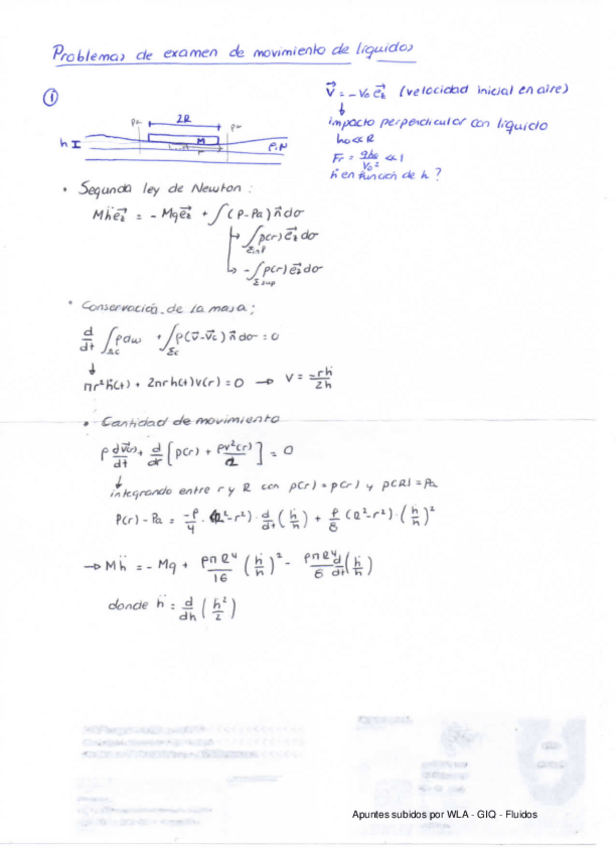 Problemas de examen de movimiento de líquidos
①
V⃗ = -V₀ e⃗z (velocidad inicial en aire)
↓
impacto perpendicular con líquido
h₀ << R
Fr = gh₀/V₀² << 1
ḣ en función de h?
2R
Pa
Pa
h
M
r
ρ, μ
• Segunda ley de Newton:
Mḧe⃗z = -Mge⃗z + ∫(P-Pa)n⃗dσ
↳ ∫Σinf p(r)e⃗zdσ
↳ -∫Σsup p(r)e⃗zdσ
• Conservación de la masa:
d/dt ∫Ωc ρdω + ∫Σc ρ(v⃗-v⃗c)n⃗dσ = 0
↓
πr²ḣ(t) + 2πrh(t)v(r) = 0 → V = -rḣ/2h
• Cantidad de movimiento
ρ dv(r)/dt + d/dr [p(r) + ρv²(r)/2] = 0
↓
integrando entre r y R con p(r) = p(r) y p(R) = Pa
P(r) - Pa = -ρ/4 · (R²-r²) · d/dt (ḣ/h) + ρ/8 (R²-r²) · (ḣ/h)²
→ Mḧ = -Mg + ρπR⁴/16 (ḣ/h)² - ρπR⁴/8 d/dt (ḣ/h)
donde ḧ = d/dh (ḣ²/2)
Apuntes subidos por WLA - GIQ - Fluidos